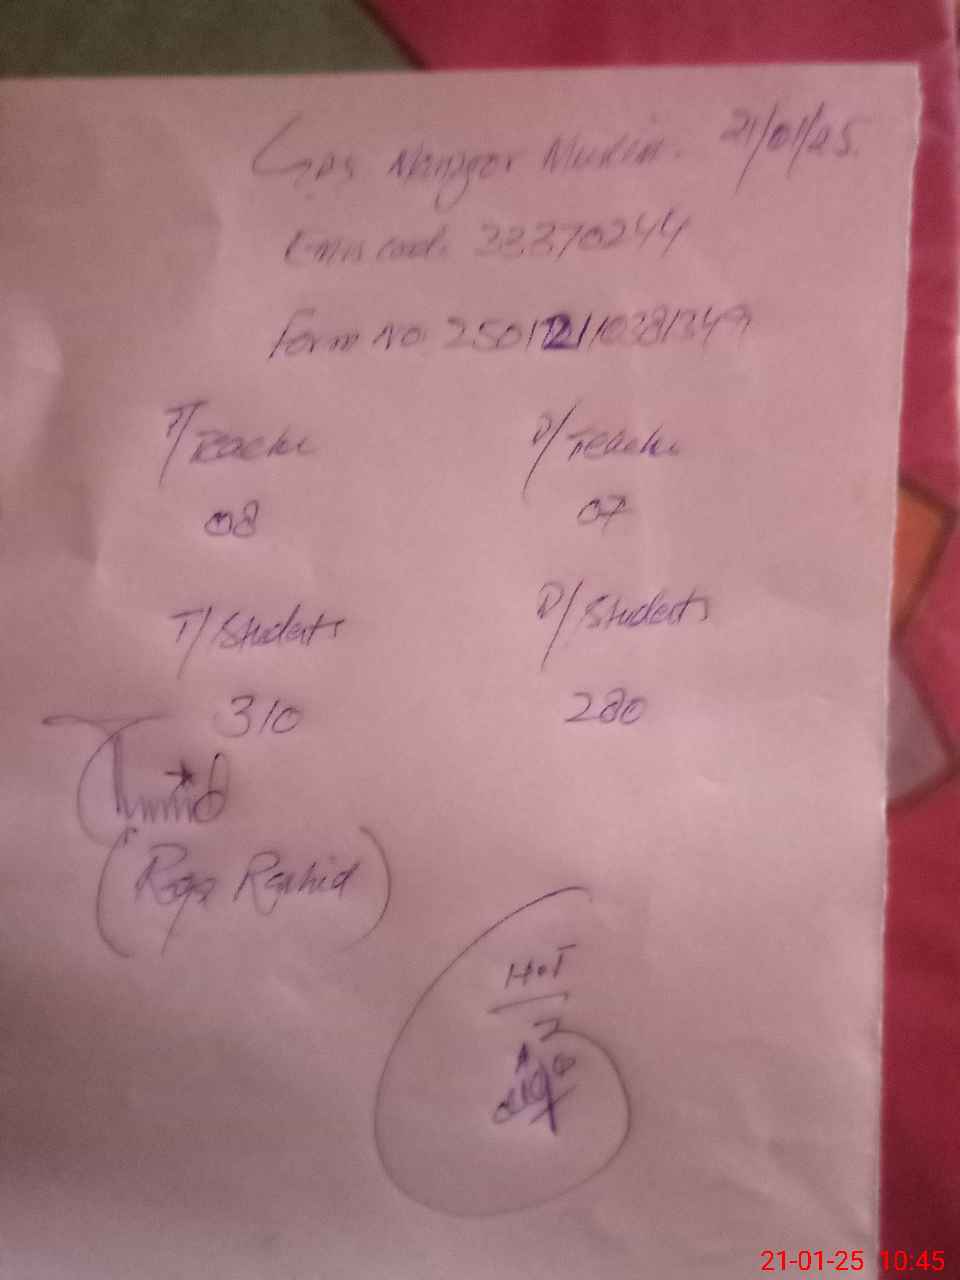 GPS Nangar Mukia. 21/01/25.
Emis code 38370244
Form No 250121/10381349
T/Teache
08
D/Teache
07
T/Students
310
D/Students
280
(Raja Rashid)
HoT
21-01-25 10:45